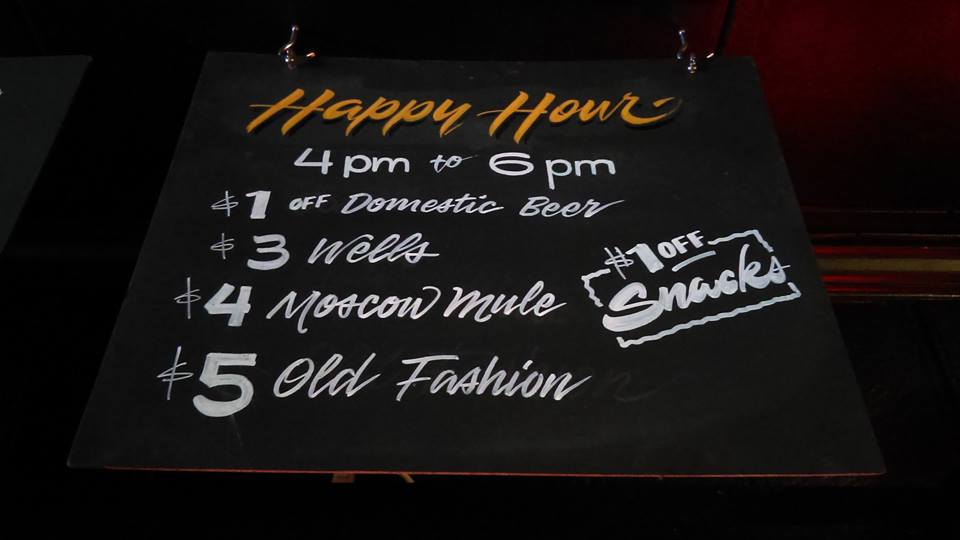 Happy Hour
4pm to 6pm
$1 OFF Domestic Beer
$3 Wells
$4 Moscow Mule
$5 Old Fashion
$1 OFF
Snacks